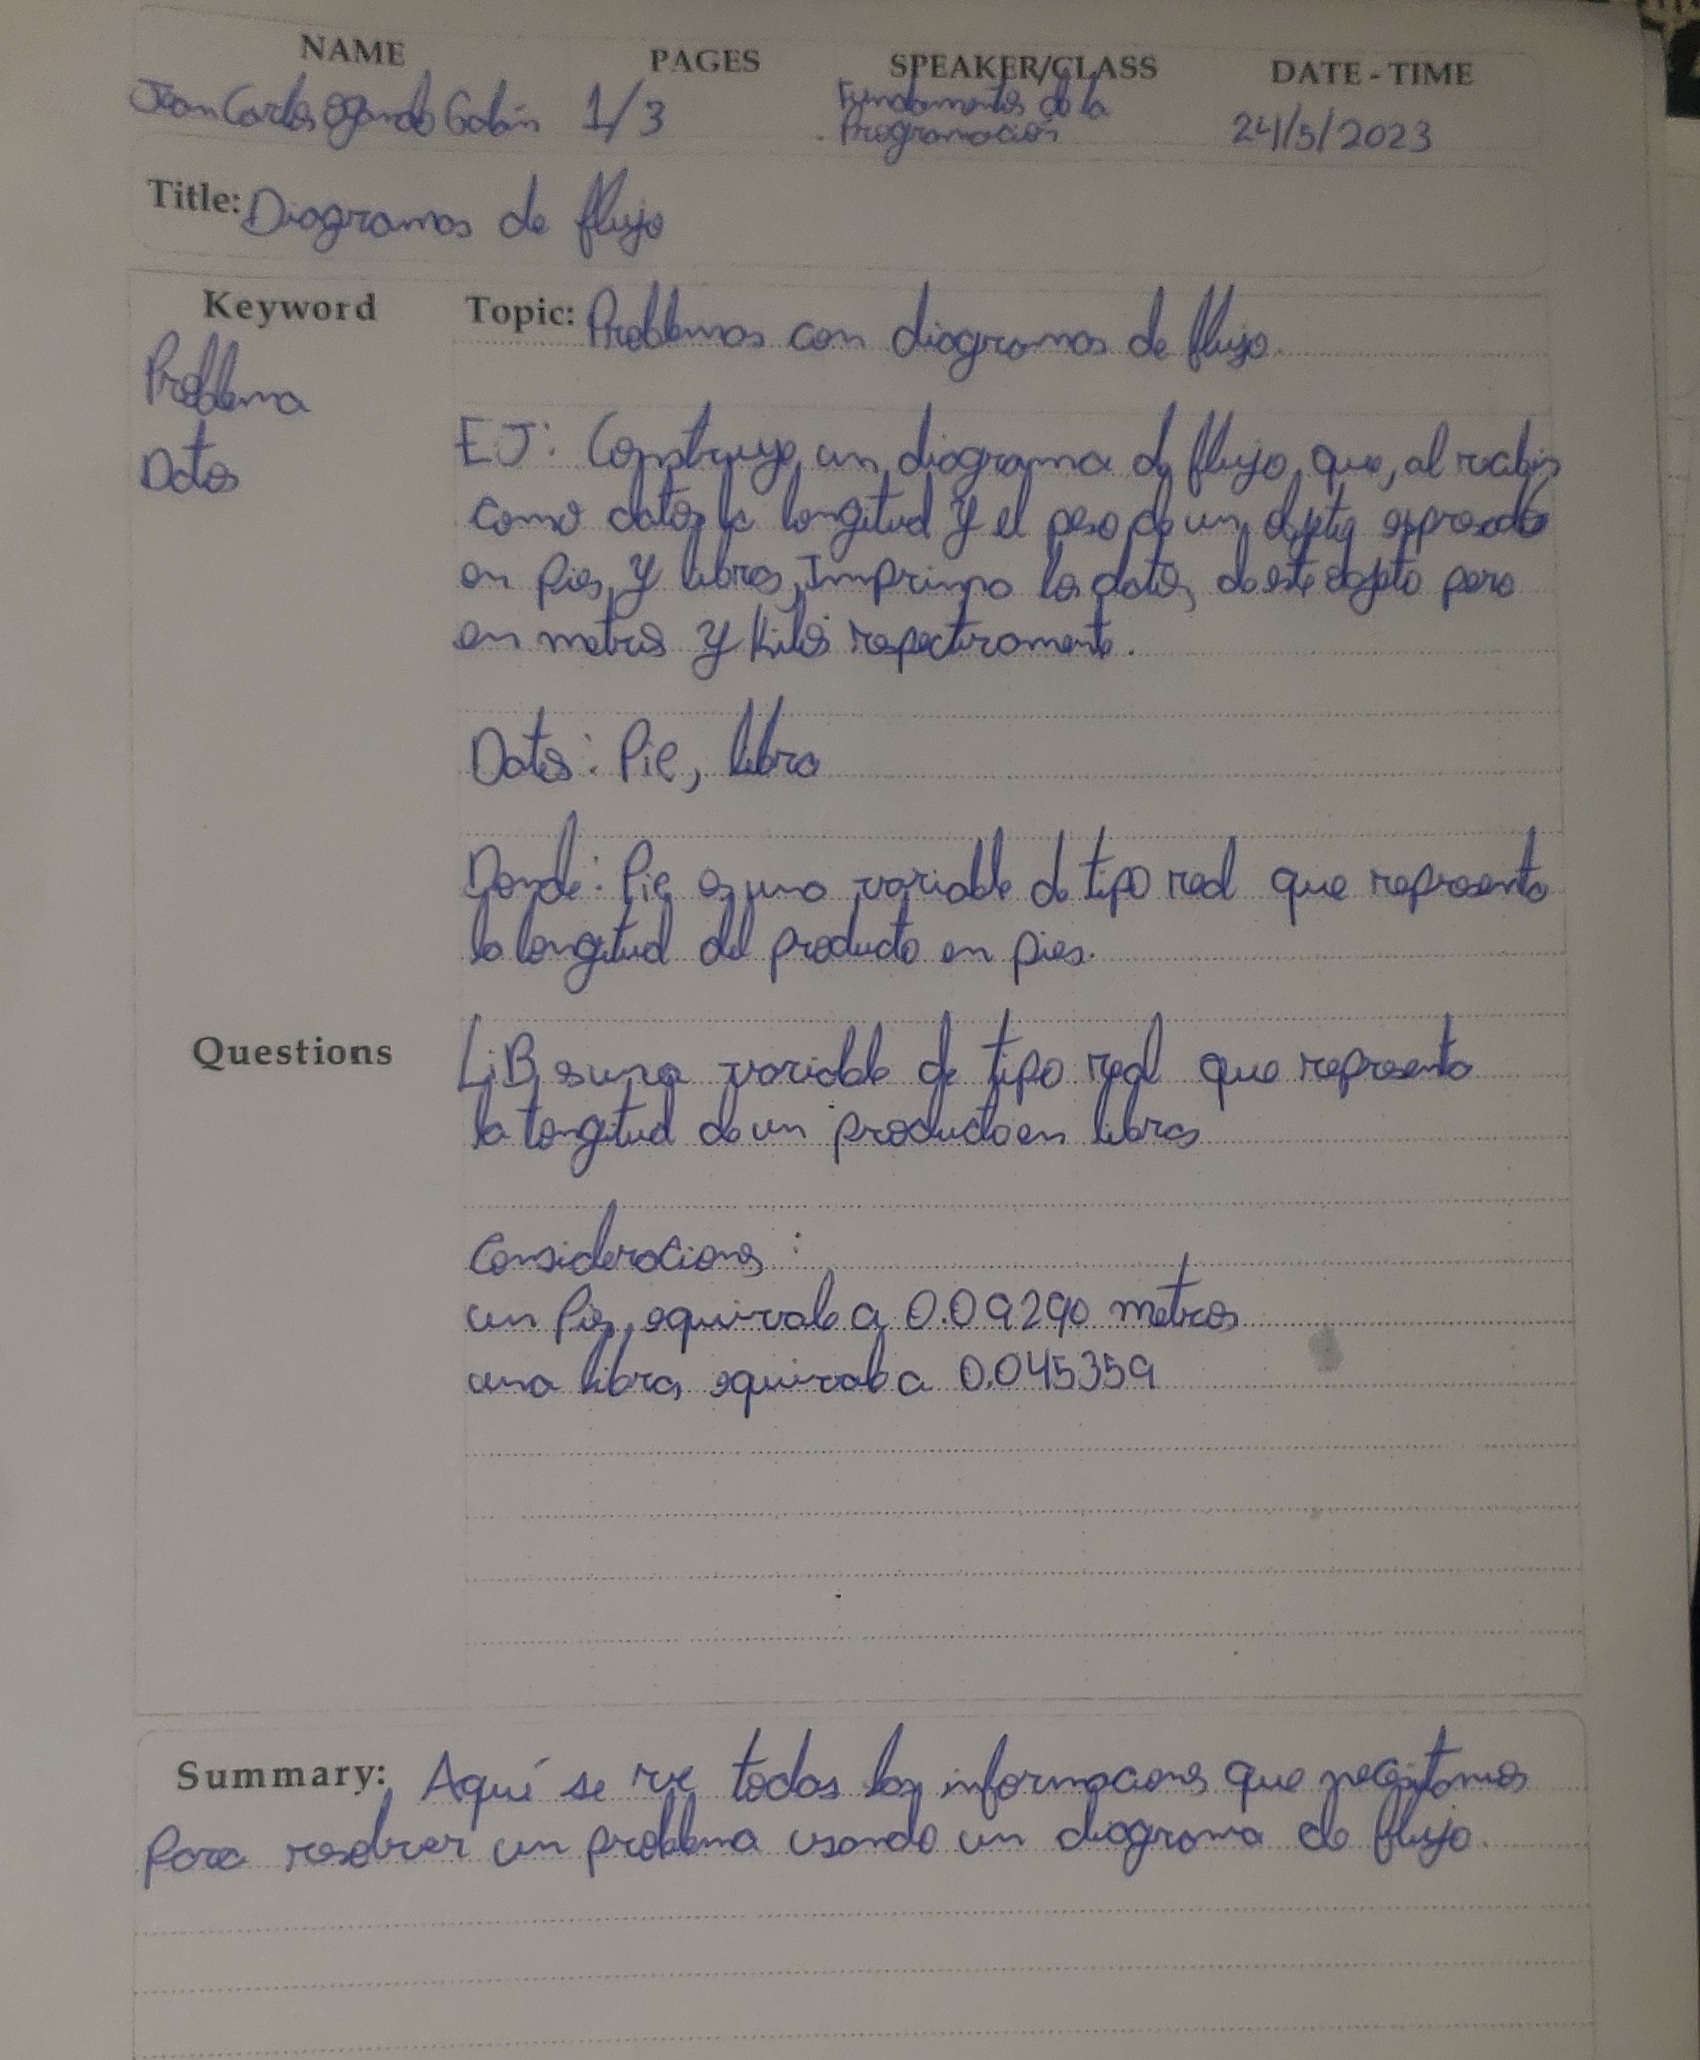 NAME PAGES SPEAKER/CLASS DATE - TIME
Jean Carlos Ogando Galán 1/3 Fundamentos de la
Programación 24/5/2023
Title: Diagramas de flujo
Keyword Topic: Problemas con diagramas de flujo.
Problema
Datos
EJ: Construye un diagrama de flujo, que, al recibir
como datos la longitud y el peso de un objeto expresado
en Pies y libras, Imprima los datos de este objeto pero
en metros y kilos respectivamente.
Datos: Pie, libra
Donde: Pie es una variable de tipo real que representa
la longitud del producto en pies.
Questions
LiB es una variable de tipo real que representa
la longitud de un producto en libras
Consideraciones :
un Pie, equivale a 0.09290 metros
una libra equivale a 0.045359
Summary: Aquí se ve todas las informaciones que necesitamos
Para resolver un problema usando un diagrama de flujo.